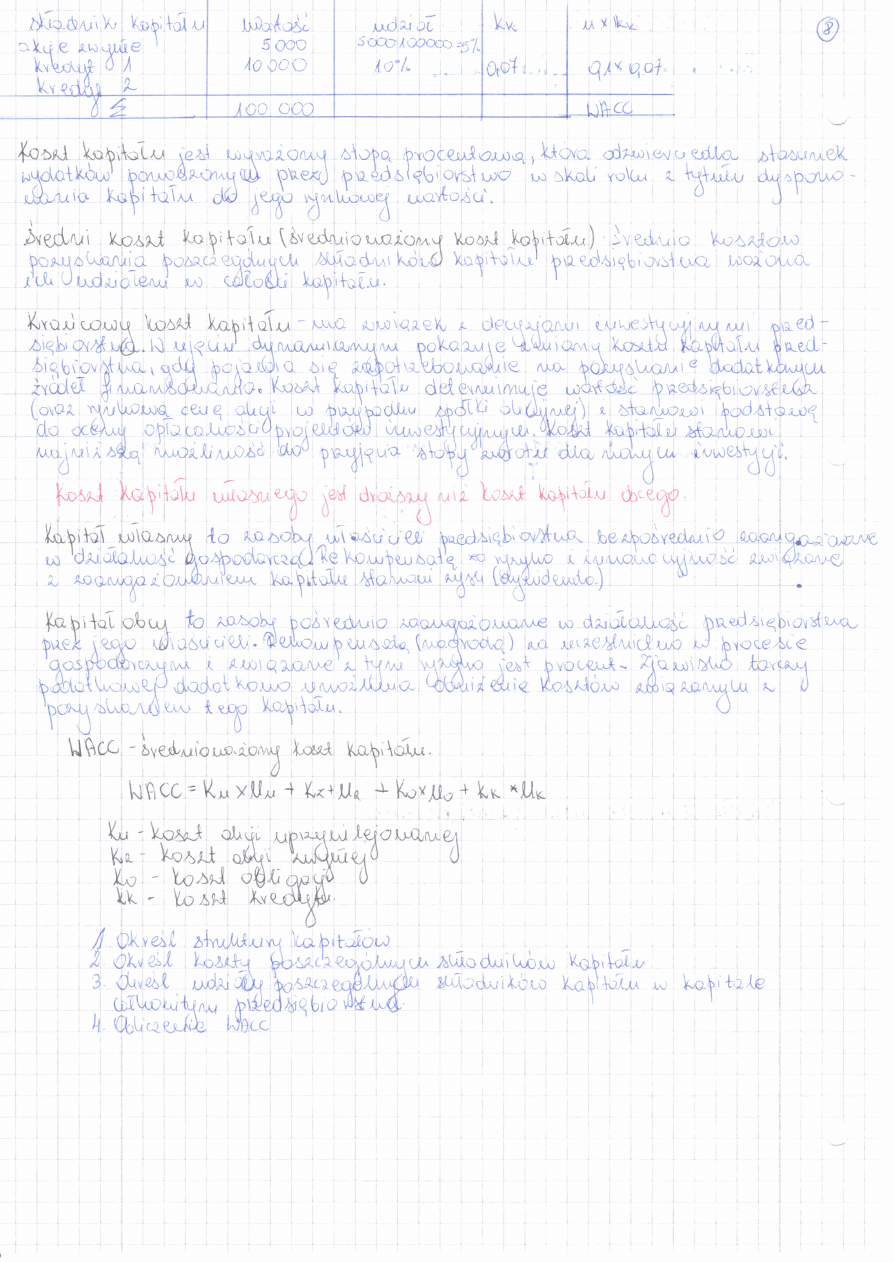 składnik kapitału wartość udział kk u x kk 8
akcje zwykłe 5 000 5000:100000=5%
kredyt 1 10 000 10% 0,07 0,1 x 0,07
kredyt 2
Σ 100 000 WACC
Koszt kapitału jest wyrażony stopą procentową, która odzwierciedla stosunek
wydatków ponoszonych przez przedsiębiorstwo w skali roku z tytułu dyspono-
wania kapitału do jego rynkowej wartości.
Średni koszt kapitału (średnioważony koszt kapitału) średnia kosztów
pozyskania poszczególnych składników kapitału przedsiębiorstwa ważona
ich udziałem w całości kapitału.
Krańcowy koszt kapitału - ma związek z decyzjami inwestycyjnymi przed-
siębiorstwa. W ujęciu dynamicznym pokazuje zmiany kosztu kapitału przed-
siębiorstwa, gdy pojawia się zapotrzebowanie na pozyskanie dodatkowych
źródeł finansowania. Koszt kapitału determinuje wartość przedsiębiorstwa
(oraz rynkową cenę akcji w przypadku spółki akcyjnej) i stanowi podstawę
do oceny opłacalności projektów inwestycyjnych. Koszt kapitału stanowi
najniższą możliwość do przyjęcia stopy zwrotu dla nowych inwestycji.
Koszt kapitału własnego jest droższy niż koszt kapitału obcego.
Kapitał własny to zasoby właścicieli przedsiębiorstwa bezpośrednio zaangażowane
w działalność gospodarczą. Rekompensatę za ryzyko i innowacyjność związane
z zaangażowaniem kapitału stanowi zysk (dywidenda)
Kapitał obcy to zasoby pośrednio zaangażowane w działalność przedsiębiorstwa
przez jego właścicieli. Rekompensatą (nagrodą) za uczestnictwo w procesie
gospodarczym i związane z tym ryzyko jest procent. Zjawisko tarczy
podatkowej dodatkowo umożliwia obniżenie kosztów związanych z
pozyskaniem tego kapitału.
WACC - średnioważony koszt kapitału.
WACC = Ku x Uu + Kz + Uz + Ko x Uo + kk * Uk
Ku - koszt akcji uprzywilejowanej
Kz - koszt akcji zwykłej
Ko - koszt obligacji
kk - koszt kredytu.
1. Określ struktury kapitałów
2. Określ koszty poszczególnych składników kapitału
3. Określ udziały poszczególnych składników kapitału w kapitale
całkowitym przedsiębiorstwa
4. Obliczenie WACC